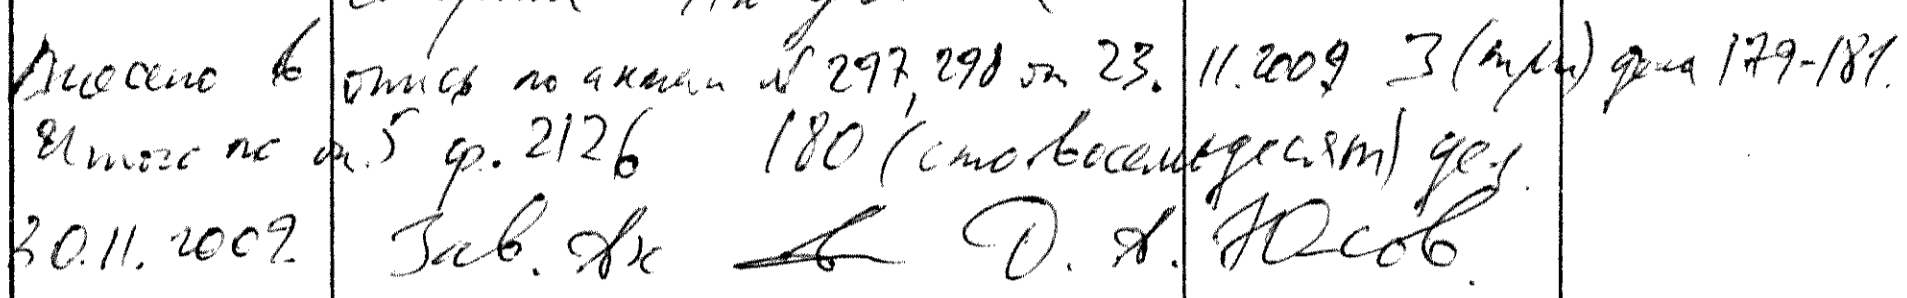 Внесено в опись по актам № 297, 298 от 23.11.2009 3 (три) дела 179-181.
Итого по оп. 5 ф. 2126 180 (сто восемьдесят) дел.
30.11.2009. Зав. Д. А. Юсов.